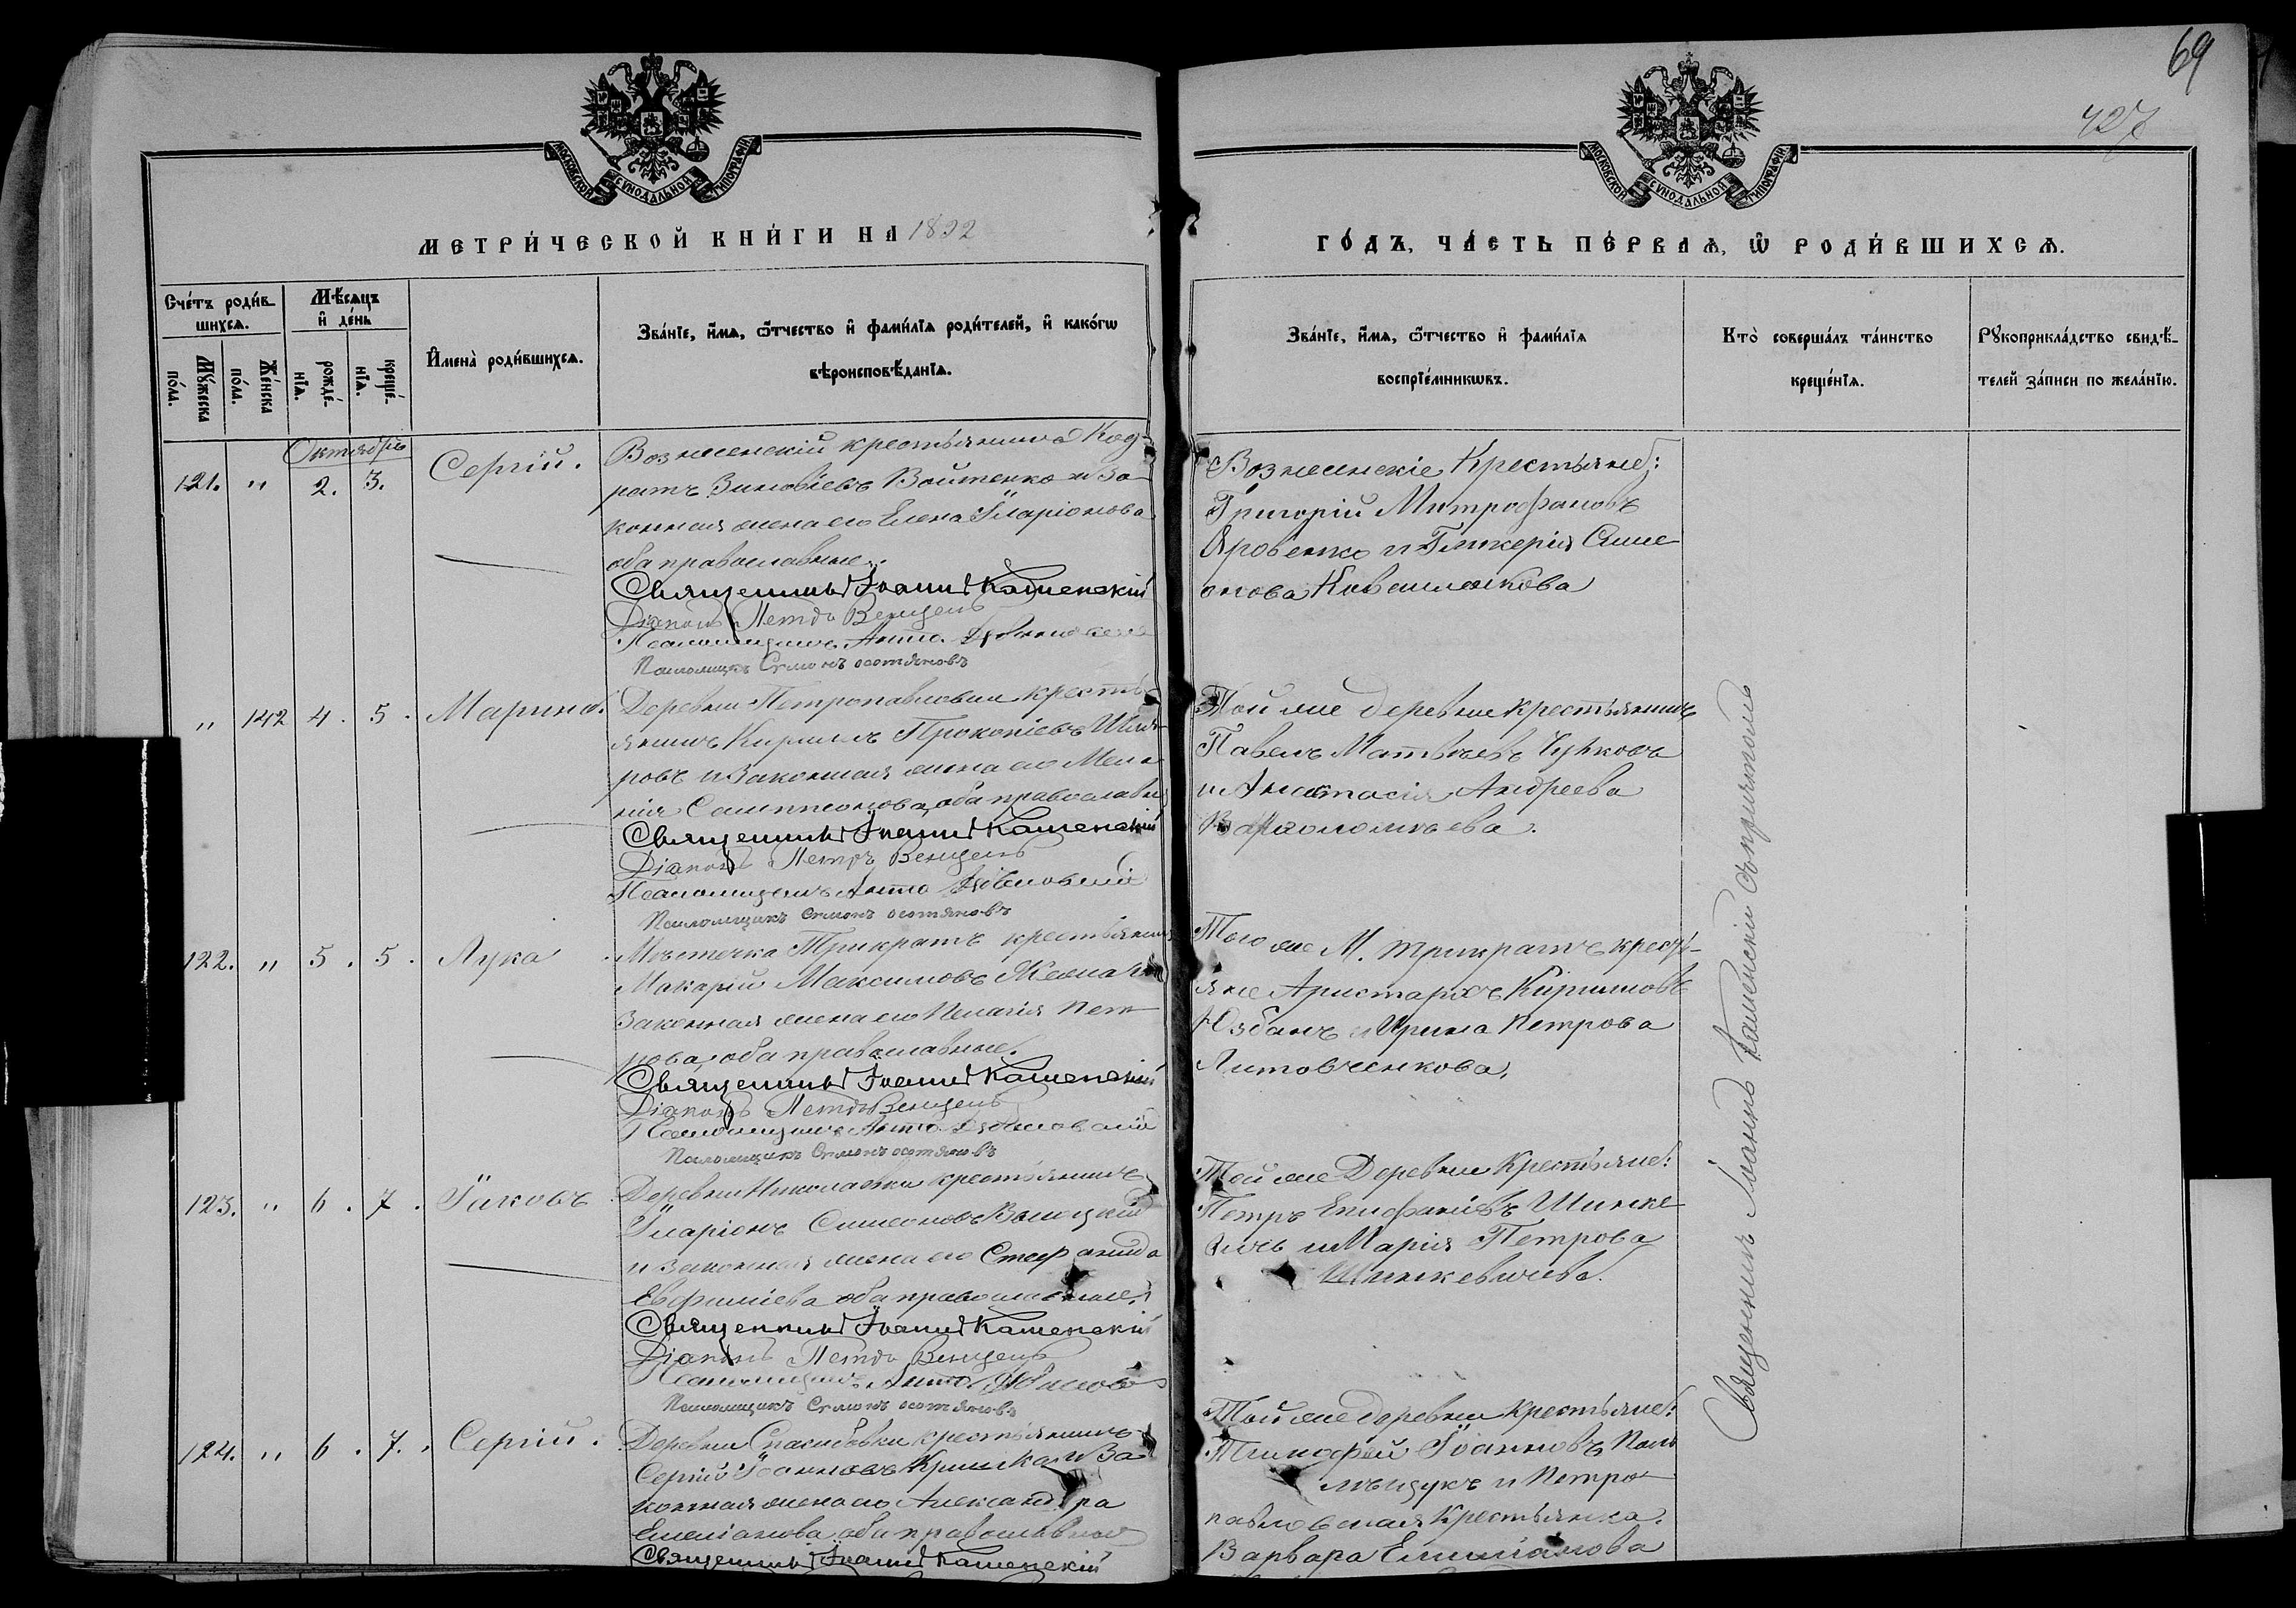 69
427
МОСКОВСКОЙ СѴНОДАЛЬНОЙ ТИПОГРАФІИ
МОСКОВСКОЙ СѴНОДАЛЬНОЙ ТИПОГРАФІИ
МЕТРИ́ЧЕСКОЙ КНИ́ГИ НА 1892
ГО́ДЪ, ЧА́СТЬ ПЕ́РВАѦ, Ѿ РОДИ́ВШИХСѦ.
Сче́тъ роди́в-
шихсѧ.
Мꙋ́жеска по́ла.
Же́нска по́ла.
Мѣ́сѧцъ
и҆ де́нь
рожде́-нїѧ.
креще́-нїѧ.
И҆мена̀ роди́вшихсѧ.
Зва́нїе, и҆́мѧ, ѻ҆́тчество и҆ фами́лїѧ роди́телей, и҆ како́гѡ
вѣроисповѣ́данїѧ.
Зва́нїе, и҆́мѧ, ѻ҆́тчество и҆ фами́лїѧ
воспрїе́мникѡвъ.
Кто̀ соверша́лъ та́инство
креще́нїѧ.
Рꙋкоприкла́дство свидѣ́-
телей за́писи по жела́нїю.
Октябрь
121. " 2. 3. Сергій.
Вознесенскій крестьянинъ Код-
ратъ Зиновіевъ Войтенко и за
конная жена его Елена Іларіонова
оба православные.
Священникъ Іоаннъ Каменскій
Діаконъ Петръ
Псаломщикъ
Псаломщикъ
Вознесенскіе Крестьяне:
Григорій Митрофановъ
Яровенко и Гликерія Симе
онова
" 142 4. 5. Марина.
Деревни Петропавловки кресть
янинъ Кириллъ Прокопіевъ
ровъ и законная жена его Мела
нія Сампсонова, оба православн
Священникъ Іоаннъ Каменскій
Діаконъ Петръ
Псаломщикъ
Псаломщикъ
Той же деревни крестьянинъ
Павелъ Матвѣевъ Чучковъ
и Анастасія Андреева
Варѳоломѣева.
122. " 5. 5. Лука
Мѣстечка Трикратъ крестьянинъ
Макарій Максимовъ
Законная жена его Пелагія Пет
рова, оба православные.
Священникъ Іоаннъ Каменскій
Діаконъ Петръ
Псаломщикъ
Псаломщикъ
Того же М. Трикратъ кресть-
яне Аристархъ Кирилловъ
Юзбанъ и Ирина Петрова
Литовченкова.
123. " 6. 7. Іаковъ
Деревни Николаевки крестьянинъ
Іларіонъ Симеоновъ
и законная жена его Стефанида
Евфиміева оба православные.
Священникъ Іоаннъ Каменскій
Діаконъ Петръ
Псаломщикъ
Псаломщикъ
Той же Деревни Крестьяне:
Петръ Епифаніевъ Шинке
вичъ и Марія Петрова
Шинкевичева.
124. " 6. 7. Сергій.
Деревни крестьянинъ
Сергій Іоанновъ и за
конная жена его Александра
Емеліанова, оба православные
Священникъ Іоаннъ Каменскій
Той же деревни Крестьяне:
Тимофей Іоанновъ
и Петро
павловская Крестьянка
Варвара Емиліанова
Священникъ Іоаннъ Каменскій съ причтомъ